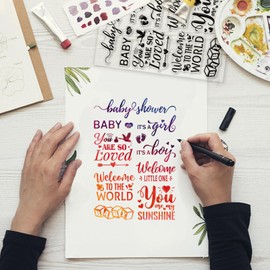 BABY
YOU
ARE SO
Loved
Welcome
TO THE
WORLD
You
baby shower
BABY
IT'S A girl
You
ARE SO
Loved
IT'S A boy
Welcome
TO THE
WORLD
Welcome
LITTLE ONE
You
are my
SUNSHINE